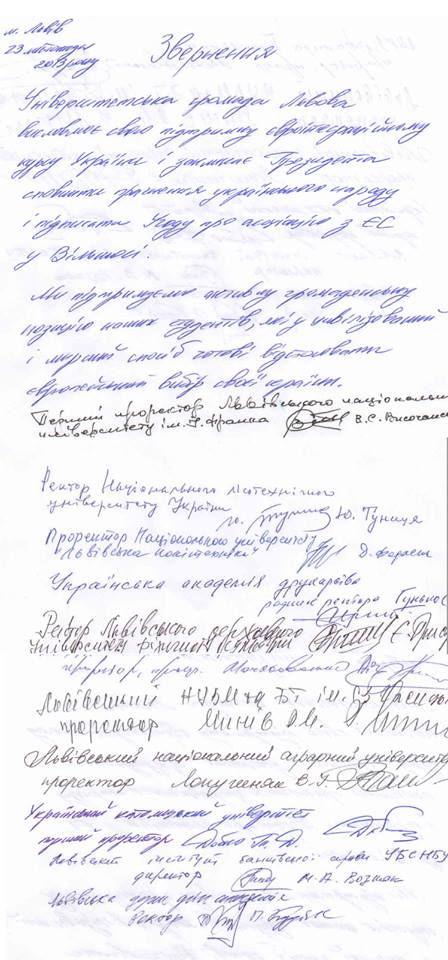 м. Львів
23 листопада
2013 року
Звернення
Університетська громада Львова
висловлює свою підтримку євроінтеграційному
курсу України і закликає Президента
сповнити прагнення українського народу
і підписати Угоду про асоціацію з ЄС
у Вільнюсі.
Ми підтримуємо активну громадянську
позицію наших студентів, які у цивілізований
і мирний спосіб готові відстоювати
європейський вибір своєї країни.
Перший проректор Львівського національн
університету ім. І. Франка В.С. Височан
Ректор Національного лісотехнічного
університету України
Ю. Туниця
Проректор Національного університету
"Львівська політехніка" Д.
Українська академія друкарства
радник ректора
Ректор Львівського державного
університету фізичної культури Є. Прис
професор, проф.
Львівський НУВМ та БТ ім. С.З. Гжицьк
проректор
Львівський національний аграрний універси
проректор Лопушняк В.І.
Український католицький університет
перший проректор Добко Т. Д.
Львівський інститут банківської справи УБС НБУ
директор М. А. Вознюк
Львівська
Ректор П.